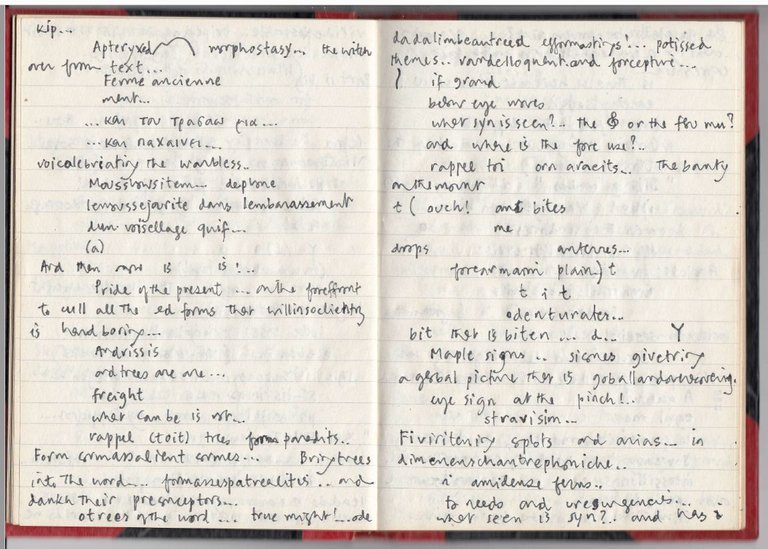 Kip...
Apteryxed morphostasy... the witch
over from text...
Ferme ancienne
ment...
... και του τρασαω για...
... και παχαινει...
voicalebriating the warbless..
dephone
lemoussejavite dans lembarassement
dun voisellage quif...
(a)
And then now is is !...
Pride of the present ... on the forefront
to cull all the ed forms that willinsoclietny
is hand boring...
Andrissis
ord trees are are...
freight
what can be is not...
rappel (toit) trees paredits..
Form cormassalient cormes... Bring trees
into the word... formassespatrealites... and
dankh their preconceptors...
otrees of the word ... true might!...ode
dadalimbeautreed efformastings!... potissed
themes.. vandelloquent and forceptive...
if grand
below eye waves
what syn is seen?.. the & or the
and where is the fore use?..
rappel toi orn aracits... The bounty
on the mount
t ( ouch! and bites
me
drops antennes...
forearmaim plain) t
t i t
odenturates...
bit that is biten ... d... Y
Maple signs .. signes givetring
a gerbal picture that is goballandoverovering.
eye sign at the pinch!..
stravisism...
Fiviritening splots and arias... in
dimenenschantrephoniche..
a amidenze ferns..
to needs and uresurgences...
what seen is syn?.. and has a